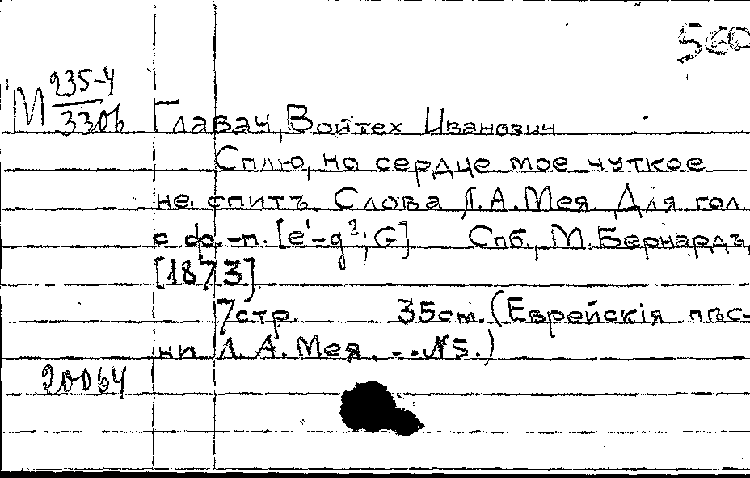 560
М 235-4
3306
Главач, Войтех Иванович
Сплю, но сердце мое чуткое
не спитъ. Слова Л.А.Мея. Для гол.
с ф.-п. [e¹-g²; G] Спб., М.Бернардъ,
[1873]
7стр. 35см. (Еврейскія пѣс-
ни Л.А.Мея. --№5.)
20064